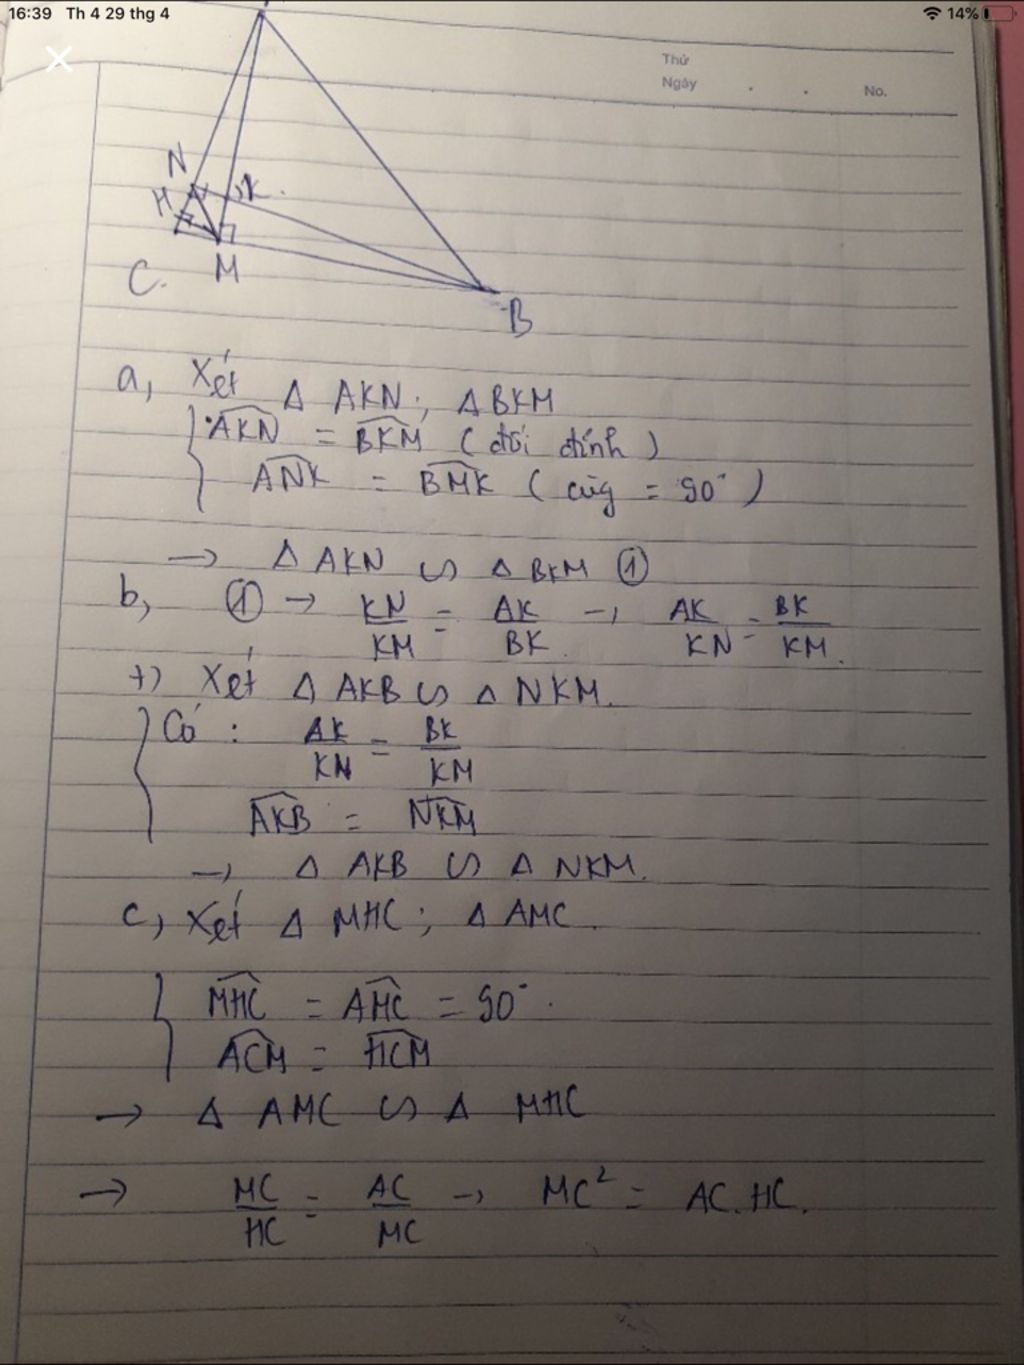 16:39 Th 4 29 thg 4 14%
Thứ
Ngày . . No.
N
H K.
C. M
B
a, Xét Δ AKN; Δ BKM
AKN = BKM (đối đỉnh)
ANK = BMK (cùg = 90°)
→ Δ AKN ∽ Δ BKM ①
b, ① → KN/KM = AK/BK → AK/KN = BK/KM.
+) Xét Δ AKB ∽ Δ NKM.
Có: AK/KN = BK/KM
AKB = NKM
→ Δ AKB ∽ Δ NKM.
c, Xét Δ MHC; Δ AMC.
MHC = AMC = 90°.
ACM = HCM
→ Δ AMC ∽ Δ MHC
→ MC/HC = AC/MC → MC² = AC.HC.